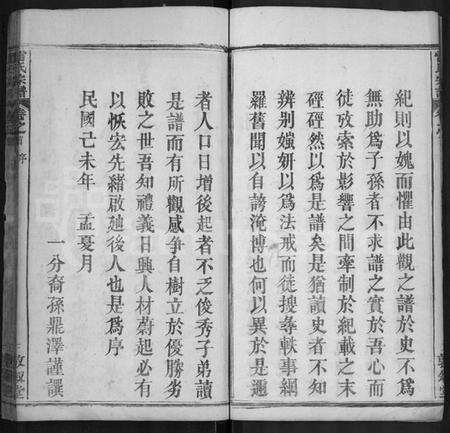 紀則以媿而懼由此觀之譜於史不爲
無助爲子孫者不求譜之實於吾心而
徒攷索於影響之間牽制於紀載之末
硜硜然以爲是譜矣是猶讀史者不知
辨别媸妍以爲法戒而徒搜尋軼事網
羅舊聞以自誇淹博也何以異於是邇
者人口日增後起者不乏俊秀子弟讀
是譜而有所觀感争自樹立於優勝劣
敗之世吾知禮義日興人材蔚起必有
以恢宏先緒啟廸後人也是爲序
民國己未年 孟夏月
一分裔孫鼎澤謹譔
氏宗譜
卷之首 序
敦叙堂